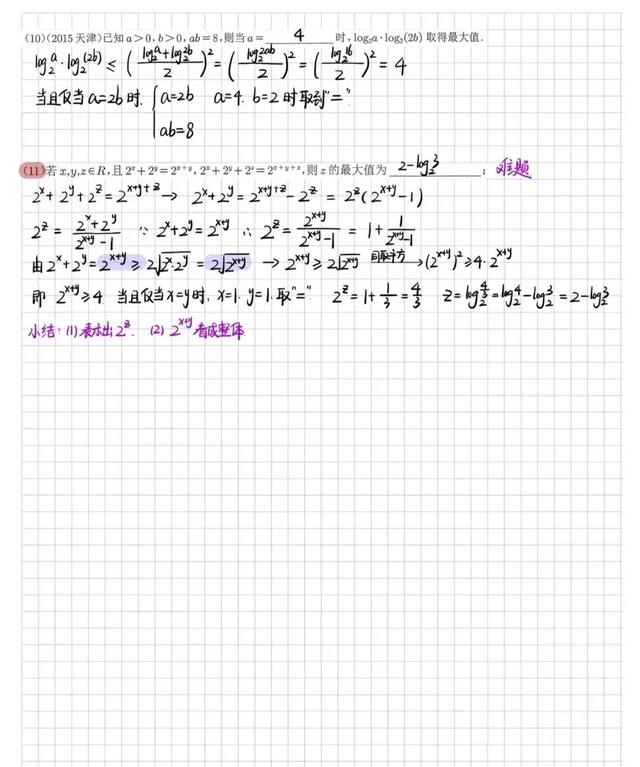 (10)(2015天津)已知a>0,b>0,ab=8,则当a=__4__时,log₂a·log₂(2b)取得最大值.
log₂a·log₂(2b) ≤ ((log₂a+log₂2b)/2)² = (log₂2ab/2)² = (log₂16/2)² = 4
当且仅当a=2b时. {a=2b a=4. b=2时取到"="
ab=8
(11)若x,y,z∈R,且2ˣ+2ʸ=2ˣ⁺ʸ,2ˣ+2ʸ+2ᶻ=2ˣ⁺ʸ⁺ᶻ,则z的最大值为__2-log₂3__; 难题
2ˣ+2ʸ+2ᶻ=2ˣ⁺ʸ⁺ᶻ→ 2ˣ+2ʸ=2ˣ⁺ʸ⁺ᶻ-2ᶻ = 2ᶻ(2ˣ⁺ʸ-1)
2ᶻ = (2ˣ+2ʸ)/(2ˣ⁺ʸ-1) ∵ 2ˣ+2ʸ=2ˣ⁺ʸ ∴ 2ᶻ = 2ˣ⁺ʸ/(2ˣ⁺ʸ-1) = 1+1/(2ˣ⁺ʸ-1)
由2ˣ+2ʸ=2ˣ⁺ʸ ≥ 2√(2ˣ·2ʸ) = 2√(2ˣ⁺ʸ) → 2ˣ⁺ʸ ≥ 2√(2ˣ⁺ʸ) 同取平方→(2ˣ⁺ʸ)² ≥4·2ˣ⁺ʸ
即 2ˣ⁺ʸ≥4 当且仅当x=y时, x=1. y=1.取"=" 2ᶻ=1+1/3=4/3 z=log₂4/3=log₂4-log₂3=2-log₂3
小结: (1)表示出2ᶻ. (2) 2ˣ⁺ʸ看成整体